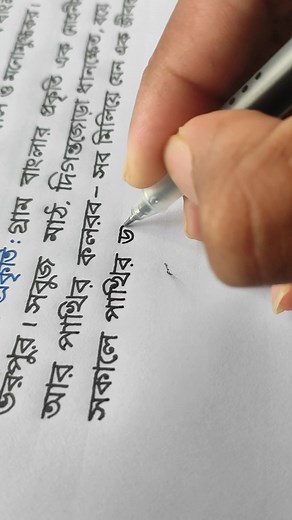 ও মনোমুগ্ধকর।
প্রকৃতি: গ্রাম বাংলার প্রকৃতি এক
ভরপুর। সবুজ মাঠ, দিগন্তজোড়া ধানক্ষেত,
আর পাখির কলরব- সব মিলিয়ে যেন এক
সকালে পাখির ড